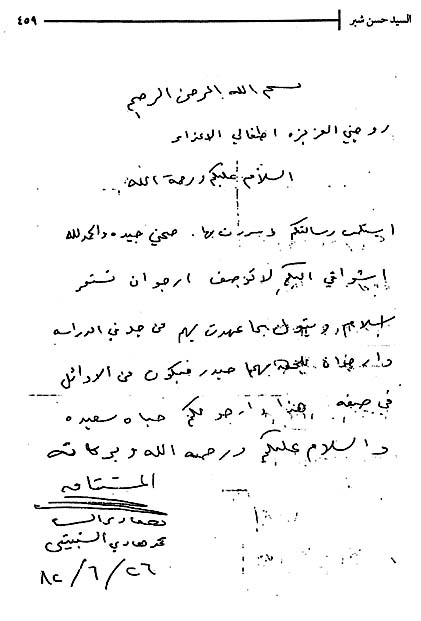 السيد حسن شبر ٤٥٩
بسم الله الرحمن الرحيم
زوجتي العزيزه اطفالي الاعزاء
السلام عليكم ورحمة الله
استلمت رسالتكم وسررت بها. صحتي جيده والحمد لله
اشواقي اليكم لا توصف ارجو ان تستمر
بما عهدت بهم من جد في الدراسه
حيدر فيكون من الاوائل
في صفه هذا وارجو لكم حياه سعيده
والسلام عليكم ورحمة الله وبركاته
المشتاق
محمد هادي السبيتي
٨٢/٦/٢٦